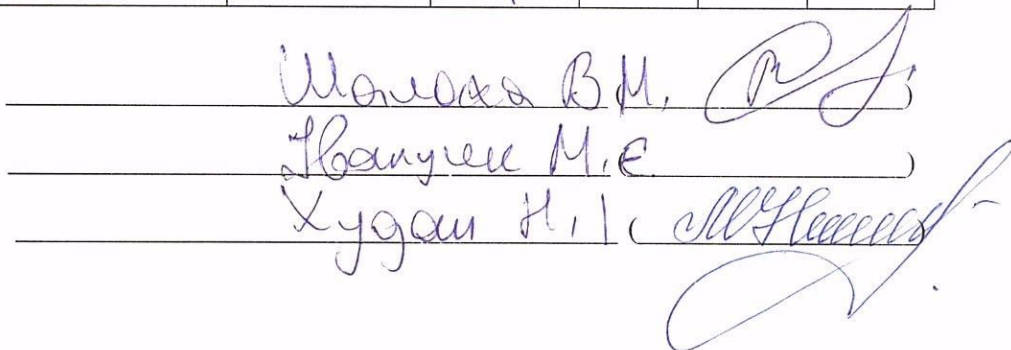 Малоха В.М. ( )
Іванучек М.Є. ( )
Худан Н.І. ( )